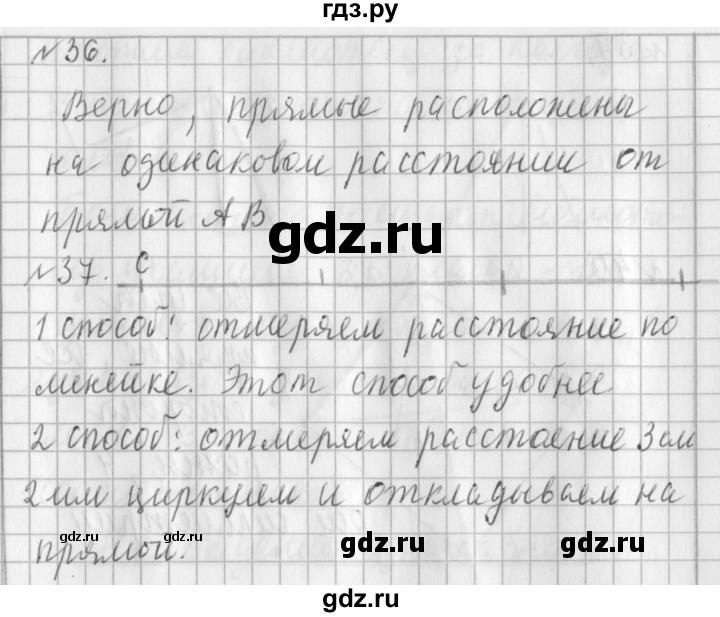 гдз.ру
№36.
Верно, прямые расположены
на одинаковом расстоянии от
прямой АВ
gdz.ru
№37. С
1 способ: отмеряем расстояние по
линейке. Этот способ удобнее
2 способ: отмеряем расстояние 3 см
2 мм циркулем и откладываем на
прямой.
gdz.ru gdz.ru gdz.ru gdz.ru
gdz.ru